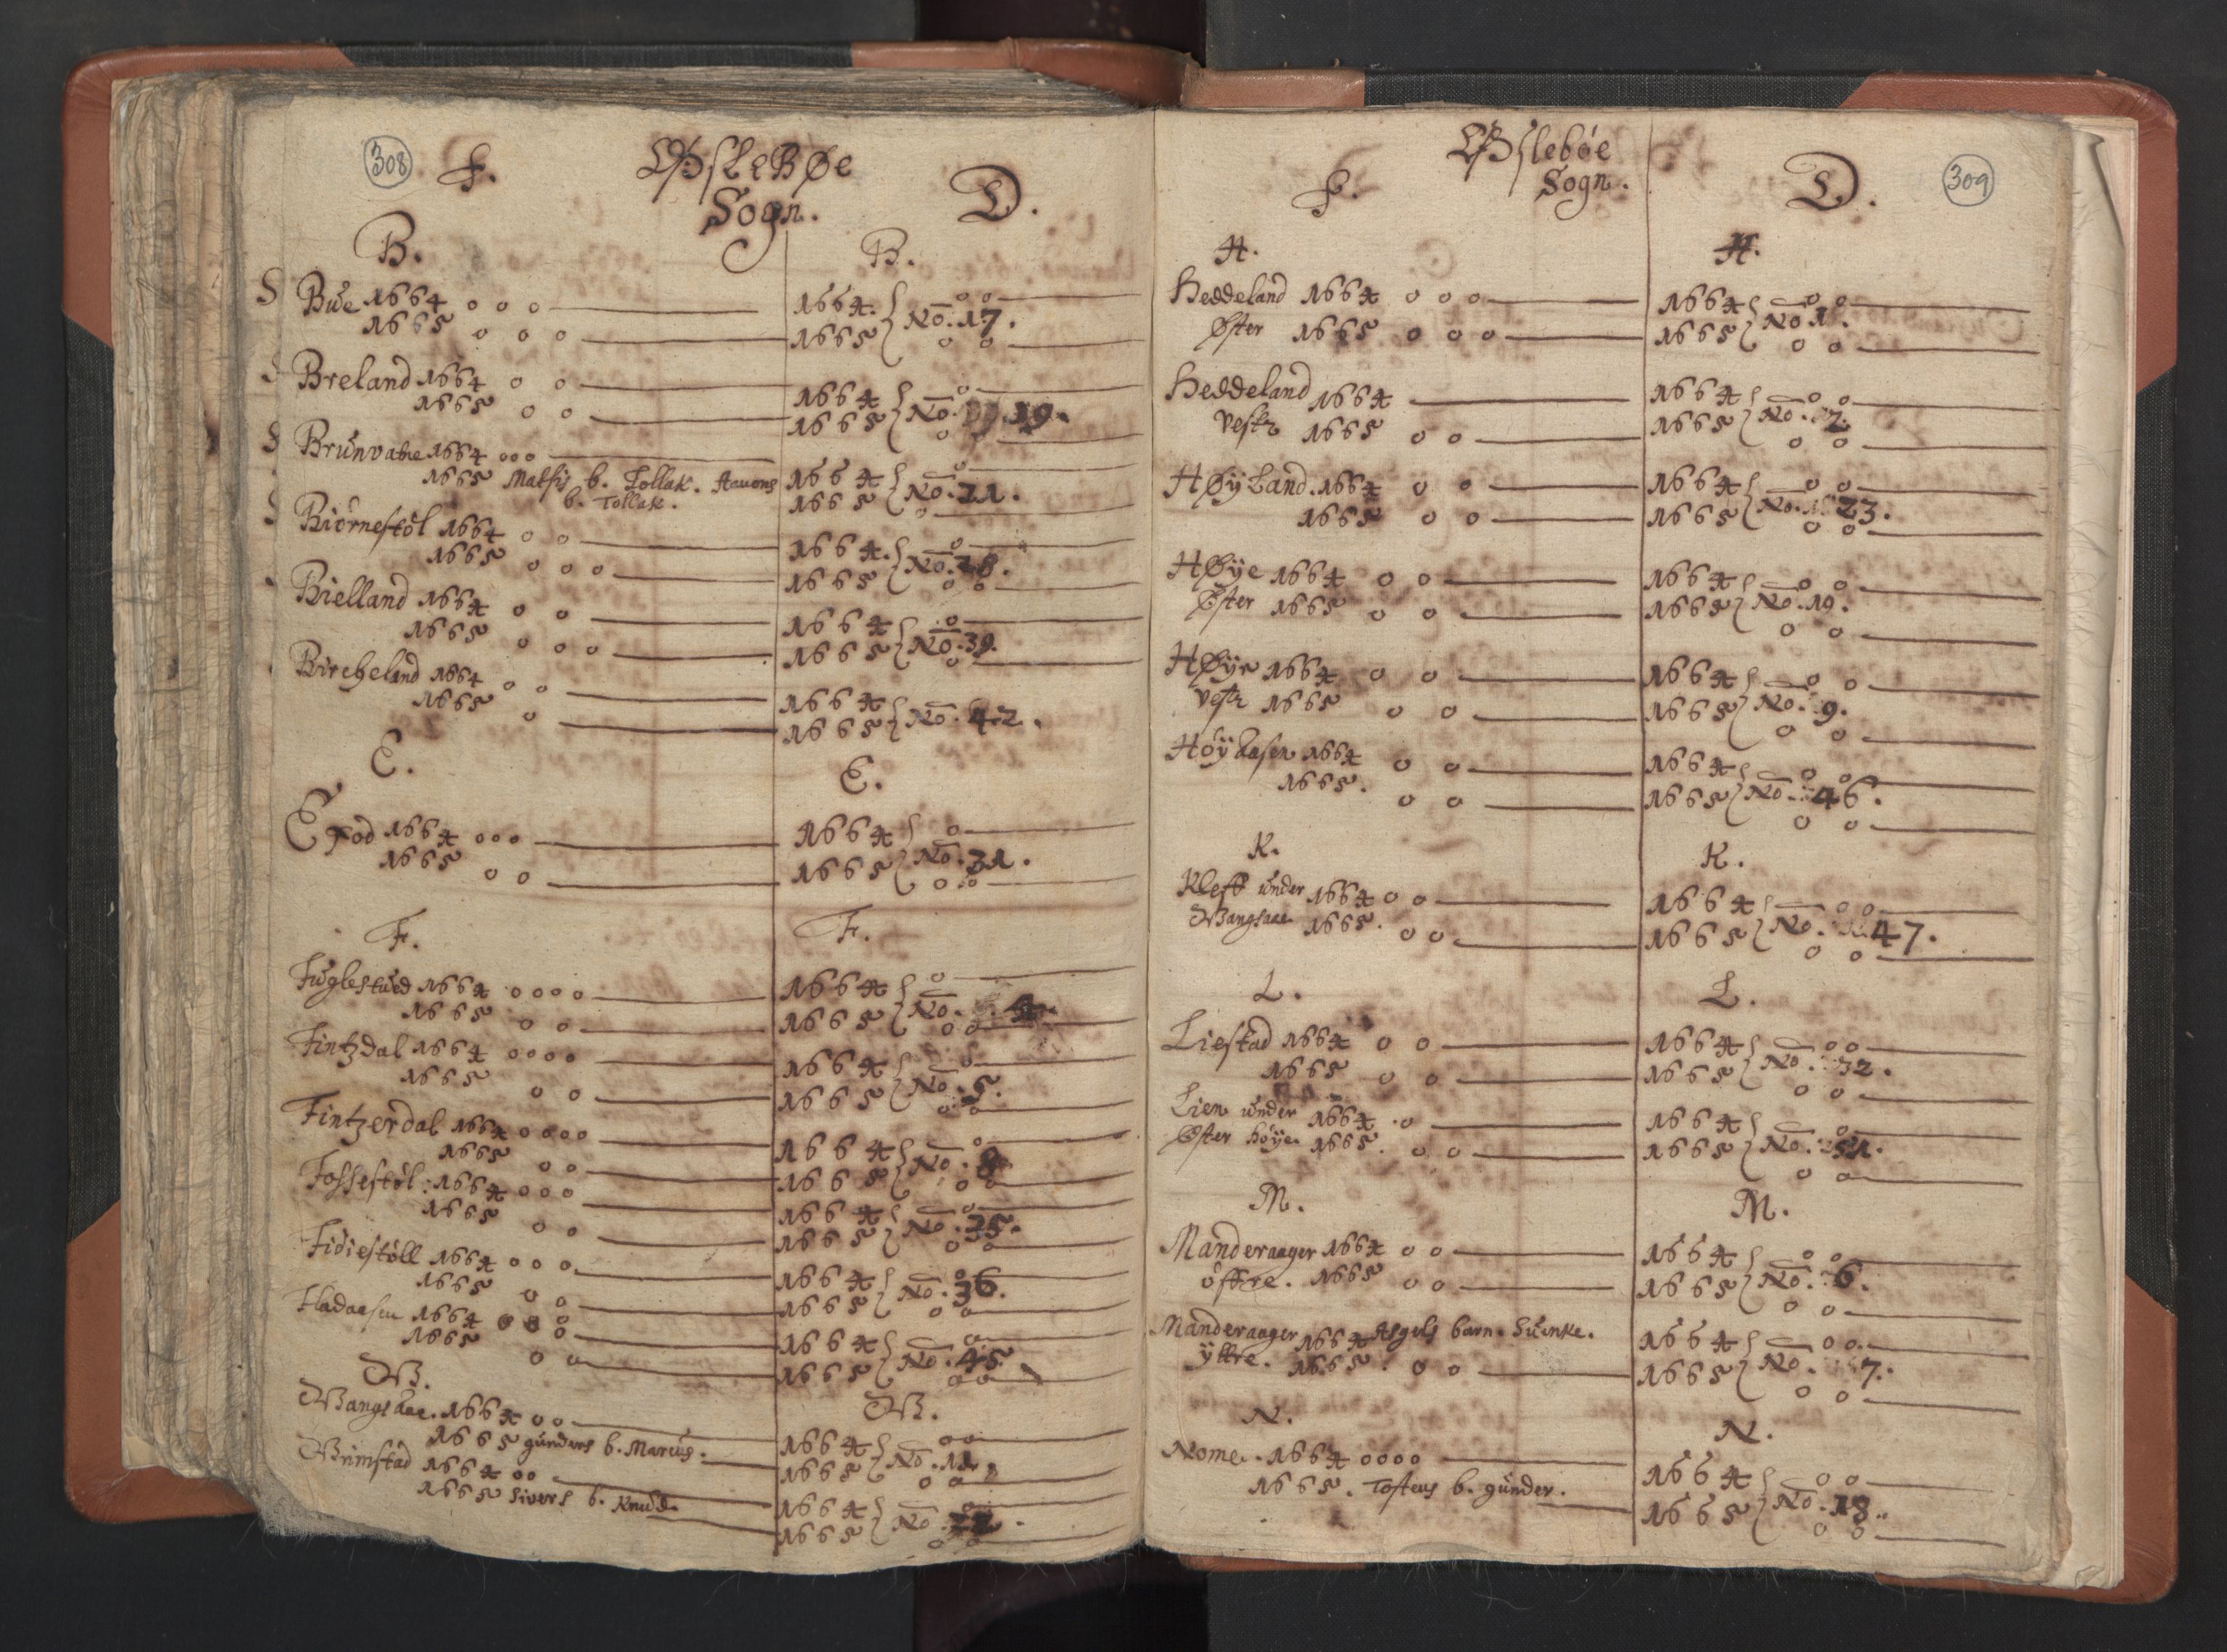 308 F. Øßlebøe D.
Sogn.
B. B.
Bue 1664 o o o 1664. o o
1665 o o o 1665 No. 17. o o
Breland 1664 o o 1664 o
1665 o o 1665 No. 19. o
Brunvatne 1664 ooo 1664 o
1665 Matsis b. Tollak. Aauons 1665 No. 21. o
b. Tollak.
Biörnestöl 1664 o o 1664. o
1665 o o o 1665 No. 28. o o
Bielland 1664 o o 1664 o
1665 o o o 1665 No. 39. o
Bircheland 1664 o o 1664
1665 o 1665 No. 42.
E. E.
Efod 1664 ooo 1664 o
1665 o o 1665 No. 31. o o
F. F.
Fuglestued 1664 oooo 1664 o
1665 o o 1665 No. 4. o o
Fintzdal 1664 oooo 1664 o
1665 o o 1665 No. 5. o o
Fintzerdal 1664 oooo 1664 o
1665 o o 1665 No. 8. o o
Fossestöl: 1664 ooo 1664 o
1665 o o 1665 No. 35. o o
Fidiestöll 1664 o o o 1664 o
1665 o o 1665 No. 36. o o
Fladaasen 1664 o o o 1664 o o
1665 o o 1665 No. 45. o o
W. W.
Wangsaae. 1664 o o 1664 o o
1665 gunders b. Marcus. 1665 No. 11. o o
Wrimstad 1664 o o 1664 o o
1665 Sivers b. Knud. 1665 No. o o
F. Øßlebøe D. 309
Sogn.
H. H.
Heddeland 1664 o o o 1664 o o
Øster 1665 o o o 1665 No 1. o o
Heddeland 1664 1664 o o
vestr 1665 o o 1665 No. 2. o o
Høyland. 1664 o o 1664 o o
1665 o o 1665 No. 23. o o
Høye 1664 o o 1664 o o
Øster 1665 o o 1665 No. 19. o o
Høye 1664 o o 1664 o o
vestr 1665 o o 1665 No. 9. o o
Höyaasen 1664 o o 1664 o o
1665. o o 1665 No. 46. o o
K. K.
Kleff under 1664 o o 1664 o o
Wangsaae 1665. o o 1665 No. 47. o o
L. L.
Liestad 1664 o o 1664 o o
1665 o o 1665 No. 32. o o
Lien under 1664 o 1664 o
Øster höye. 1665. o o 1665 No. 51. o o
M. M.
Manderaager 1664 o o 1664 o o
öffre. 1665 o o 1665 No. 6. o o
Manderaager 1664 Asgels barn. Suenke. 1664 o o
ÿttre. 1665. o o 1665 No. 7. o o
N. N.
Nome. 1664 oooo 1664 o o
1665. Tostens b. gunder. 1665 No. 18. o o